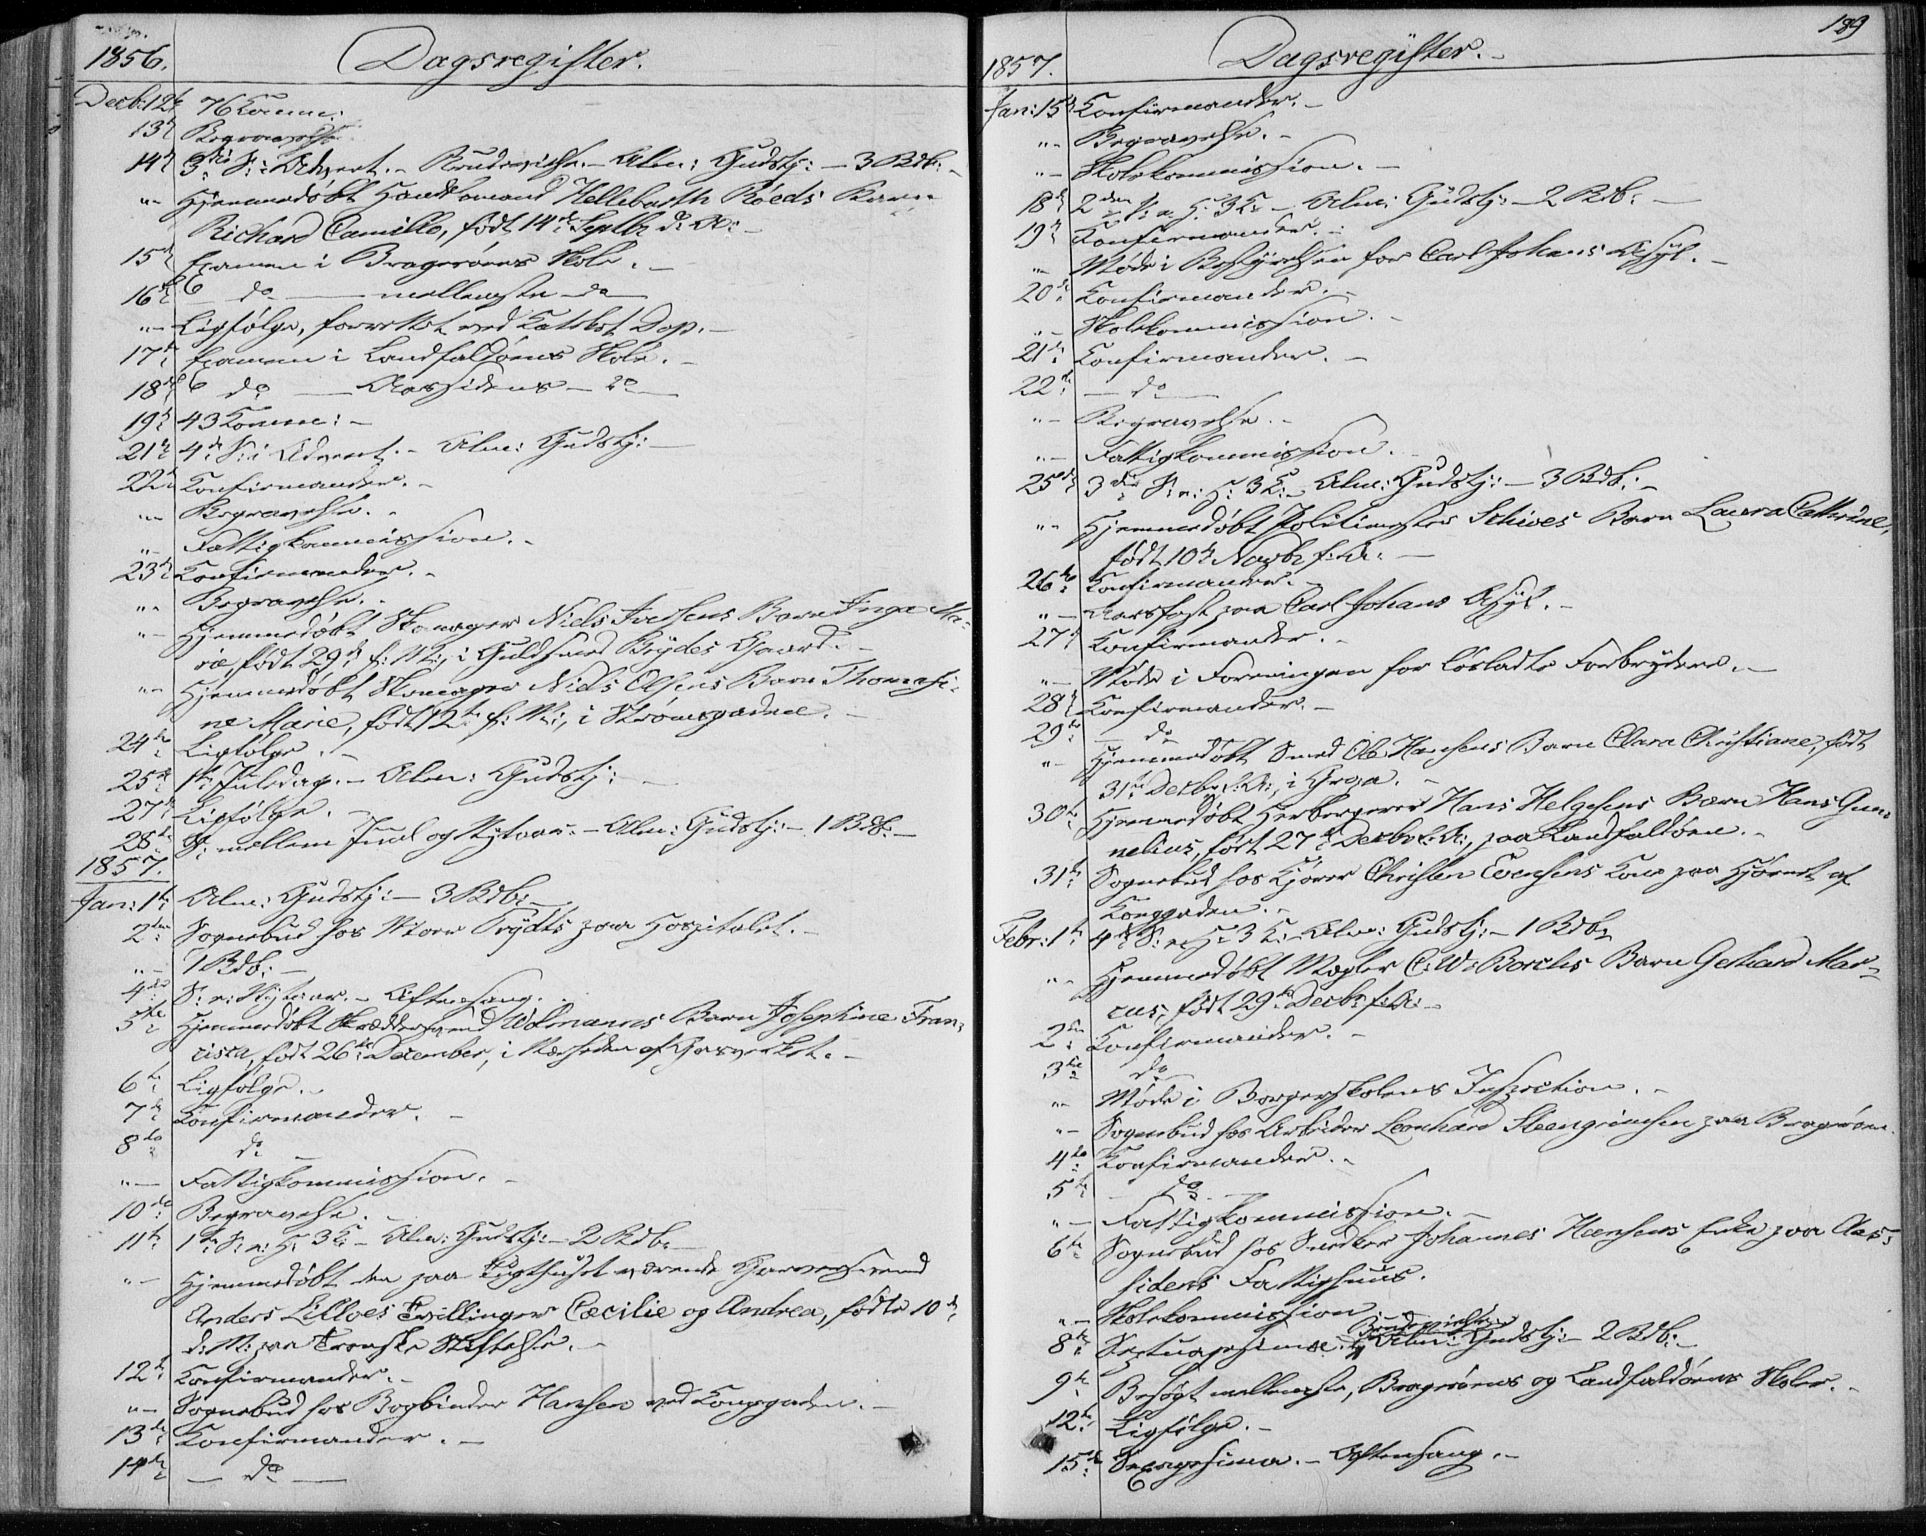 1856.
Dagsregister.
Decb: 12te 76 Komm:
13de Begravelse
14de 3die S: i Advent. - Brudevielse. - Alm: Gudstj: - 3 Bdb: -
"- Hjemmedøbt Handelsmand Hellebarth Röeds Barn
Richard Camillo, født 14de Septbr d: A: -
15de Examen i Bragerøens Skole. -
16de do mellemste do
"- Ligfølge, forrettet ved Dop. -
17de Examen i Landfaldøens Skole. -
18de do Aassidens do
19de 43 Komm: -
21de 4de S: i Advent. - Alm: Gudstj: -
22de Konfirmander. -
"- Begravelse. -
"- Fattigkommission. -
23de Konfirmander. -
"- Begravelse. -
"- Hjemmedøbt Skomager Niels Iversens Barn Inga Ma-
rie, født 29de f: M:, i Guldsmed Brydes Gaard. -
"- Hjemmedøbt Skomager Niels Olsens Barn Thomasi-
ne Marie, født 12te f: M:, i Strømsgaden. -
24de Ligfølge. -
25de 1ste Juledag. - Alm: Gudstj: -
27de Ligfølge. -
28de S: mellem Juul og Nytaar. - Alm: Gudstj: - 1 Bdb: -
1857.
Jan: 1ste Alm: Gudstj: - 3 Bdb: -
2den Sognebud hos Trydts paa Hospitalet. -
"- 1 Bdb: -
4de S: e: Nytaar. - Aftensang. -
5te Hjemmedøbt Skræddersvend Wolmanns Barn Josephine Fran-
cisca, født 26de December, i Nærheden af Gasværket. -
6te Ligfølge. -
7de Konfirmander. -
8de do
"- Fattigkommission. -
10de Begravelse. -
11te 1ste S: e: H: 3 K: - Alm: Gudstj: - 2 Bdb: -
"- Hjemmedøbt den paa Tugthuset værende Garversvend
Anders Lilloes Tvillinger Cæcilie og Andrea, fødte 10de
d: M: paa Tronske Stiftelse. -
12te Konfirmander. -
"- Sognebud hos Bogbinder Hansen ved Konggaden. -
13de Konfirmander. -
14de - do -
189
1857.
Dagsregister. -
Jan: 15de Konfirmander. -
"- Begravelse. -
"- Skolekommission. -
18de 2den S: e: H: 3 K: - Alm: Gudstj: - 2 Bdb: -
19de Konfirmander. -
"- Møde i Bestyrelsen for Carl Johans Asyl. -
20de Konfirmander. -
"- Skolekommission. -
21de Konfirmander. -
22de - do
"- Begravelse. -
"- Fattigkommission. -
25de 3die S: e: H: 3 K: - Alm: Gudstj: - 3 Bdb: -
"- Hjemmedøbt Politimester Schives Barn Laura Cathrine,
født 10de Novbr f: A: -
26de Konfirmander. -
"- Aarsfest paa Carl Johans Asyl. -
27de Konfirmander. -
"- Møde i Foreningen for løsladte Forbrydere. -
28de Konfirmander. -
29de do
"- Hjemmedøbt Smed Ole Hansens Barn Clara Christiane, født
31te Decbr f: A:, i . -
30te Hjemmedøbt Herbergerer Hans Helgesens Barn Hans Gun-
nelius, født 27de Decbr f: A:, paa Landfaldøen. -
31te Sognebud hos Kjører Christen Evensens Kone paa Hjørnet af
Konggaden. -
Febr: 1ste 4de S: e: H: 3 K: - Alm: Gudstj: - 1 Bdb:
"- Hjemmedøbt Mægler C: W: Borchs Barn Gerhard Mar-
cus, født 29de Decbr f: A: -
2den Konfirmander. -
3die do
"- Møde i Borgerskolens Inspection. -
"- Sognebud hos Arbeider Leonhard Steengrimsen paa Bragerøen.
4de Konfirmander. -
5te do
"- Fattigkommission. -
6te Sognebud hos Snedker Johannes Hansens Enke paa Aas-
sidens Fattighuus.
"- Skolekommission
8de Septuagesima. Brudevielse. Alm: Gudstj: - 2 Bdb: -
9de Besøgt mellemste, Bragerøens og Landfaldøens Skoler. -
12te Ligfølge. -
15de Sexagesima. - Aftensang. -